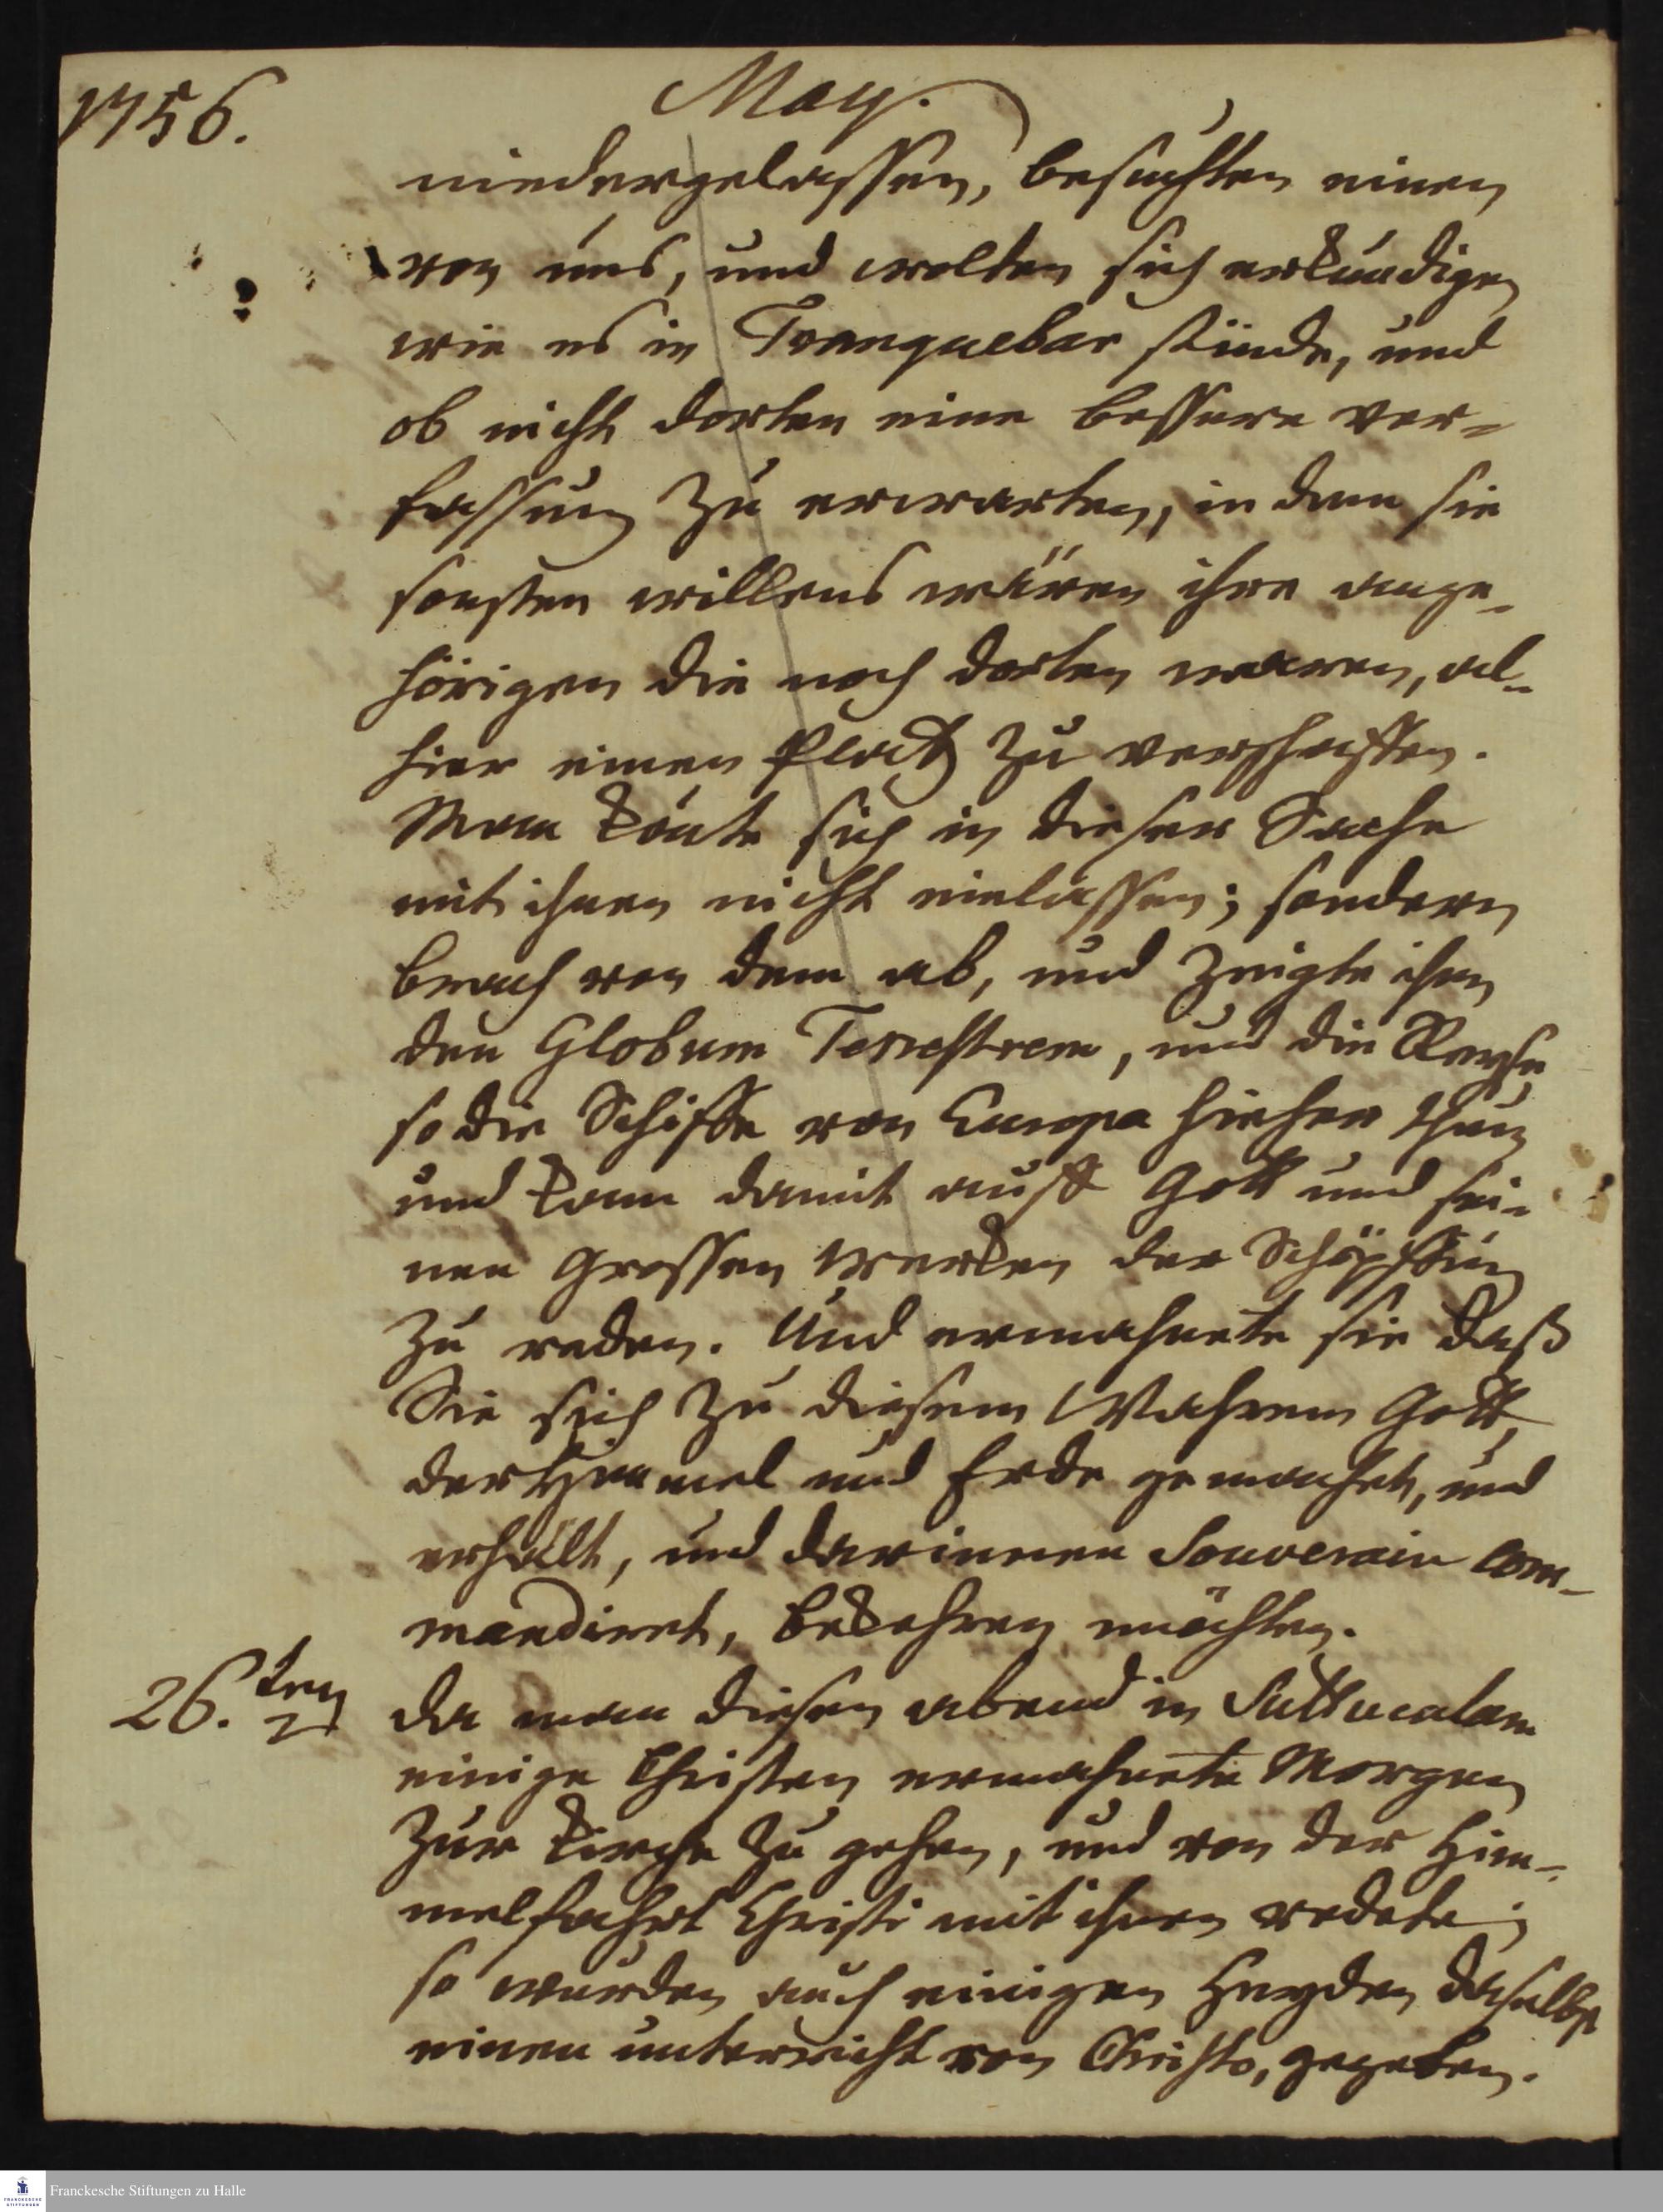 1756.
May.
niedergelassen, besuchten einen
von uns, und wolten sich erkundigen
wie es in Tranquebar stünde, und
ob nicht dorten eine bessere ver-
fassung zu erwarten, in dem sie
sonsten willens wären ihre ange-
hörigen die noch dorten waren, al-
hier einen Platz zu verschaffen.
Man konte sich in dieser Sache
mit ihnen nicht einlassen; sondern
brach von dem ab, und zeigte ihn
den Globum Terrestrem, und die Reyse
so die Schiffe von Europa hieher thun
und kam damit auff Gott und sei-
nen grossen Werken der Schöpffung
zu reden. Und ermahnete sie daß
Sie sich zu diesem Wahren Gott,
der Himmel und Erde gemachet, und
erhält, und darinnen Souverain com-
mandiret, bekehren möchten.
26.ten Da man diesen abend in Sattucalam
einige Christen ermahnete Morgen
zur Kirche zu gehen, und von der Him-
melfahrt Christi mit ihnen redete;
so wurden auch einigen Heyden daselbst
einen unterricht von Christo, gegeben.
Franckesche Stiftungen zu Halle
FRANCKESCHE
STIFTUNGEN